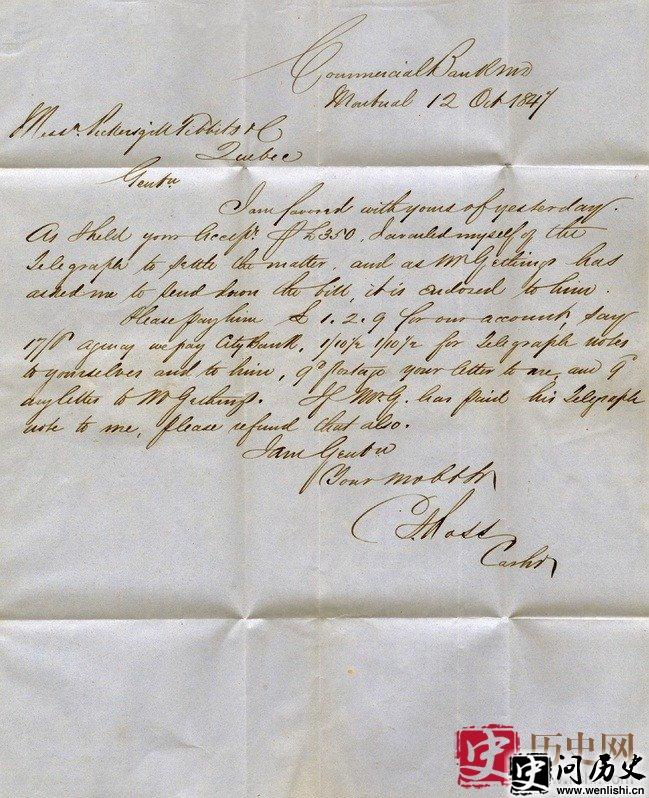 Commercial Bank MD
Montreal 12 Oct 1847
Messrs Pickersgill Tibbits & C
Quebec
Gentn
I am favored with yours of yesterday.
As I held your Accepce of £350, I availed myself of the
Telegraph to settle the matter, and as Mr Gethings has
asked me to send down the bill, it is endorsed to him.
Please pay him £1.2.9 for our account, say
agency we pay City Bank, 1/10½ 1/10½ for Telegraph notes
to yourselves and to him, 9d postage your letter to me, and 9d
my letter to Mr Gethings. If Mr G. has paid his Telegraph
note to me, please refund that also.
I am Gentn
Your mo ob St
Ross
Cashr
史 历史网
史 问历史
www.wenlishi.cn